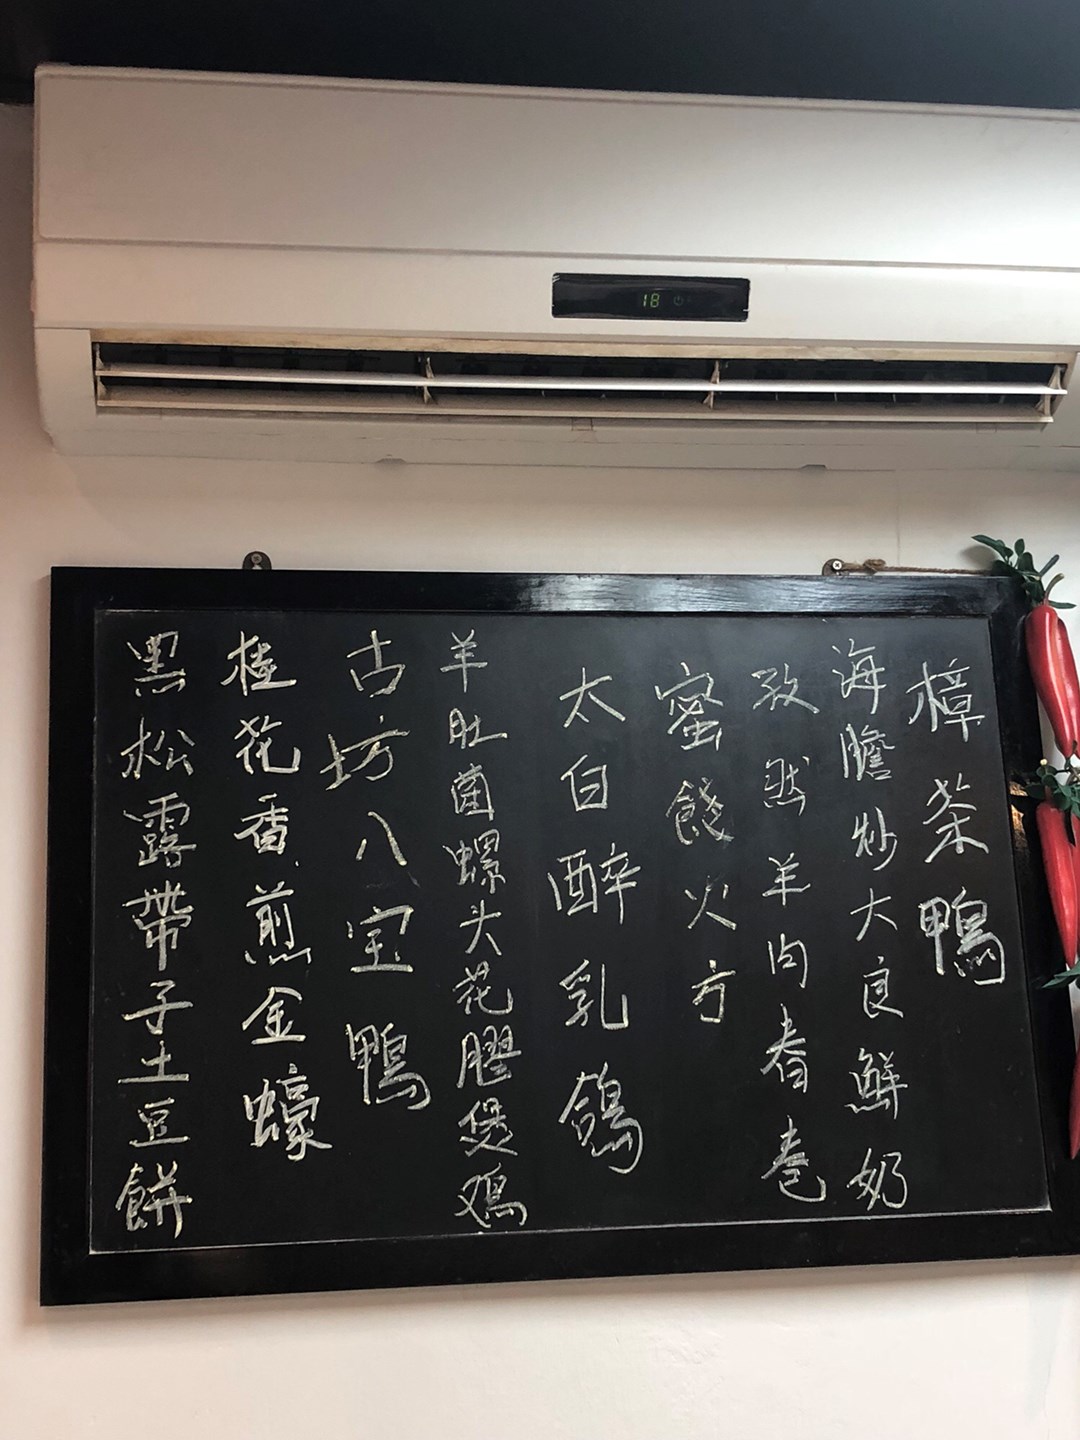 18
樟茶鴨
海膽炒大良鮮奶
孜然羊肉春卷
蜜餞火方
太白醉乳鴿
羊肚菌螺头花膠煲鸡
古坊八宝鴨
桂花香煎金蠔
黑松露帶子土豆餅